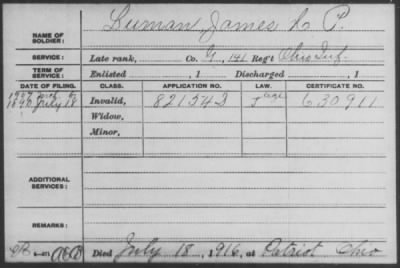 NAME OF SOLDIER: Luman, James L. P.
SERVICE: Late rank, Co. G, 141 Reg't Ohio Inf.
TERM OF SERVICE: Enlisted , 1 Discharged , 1
DATE OF FILING. CLASS. APPLICATION NO. LAW. CERTIFICATE NO.
1890 July 18 Invalid, 821542 J 630911
Widow,
Minor,
ADDITIONAL SERVICES:
REMARKS:
Died July 18, 1916, at Patriot Ohio